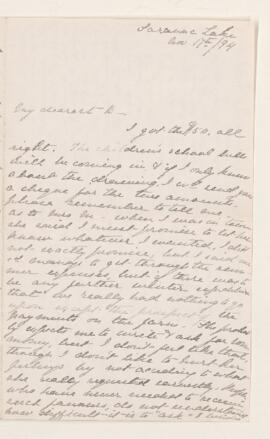 Saranac Lake
Nov 17th/94
My dearest D—
I got the $50. all
right. The children's school bills
will be coming in & if I only knew
about the drawing, I wd send you
a cheque for the two amounts,
please remember to tell me —
as to Mrs M — when I was in town
she said I must promise to let her
know whatever I wanted, I did
not exactly promise, but I said we
could manage to get through the sum-
mer expenses, but if there was to
be any further winter expedition
that we really had nothing to go
upon except the prospect of the
payments on the farm. She proba-
bly expects me to write & ask for some
money, but I don't just like that,
though I don't like to hurt her
feelings by not acceding to what
she really requested earnestly. People
who have never needed to receive
such favours, do not understand
how difficult it is to ask — I know